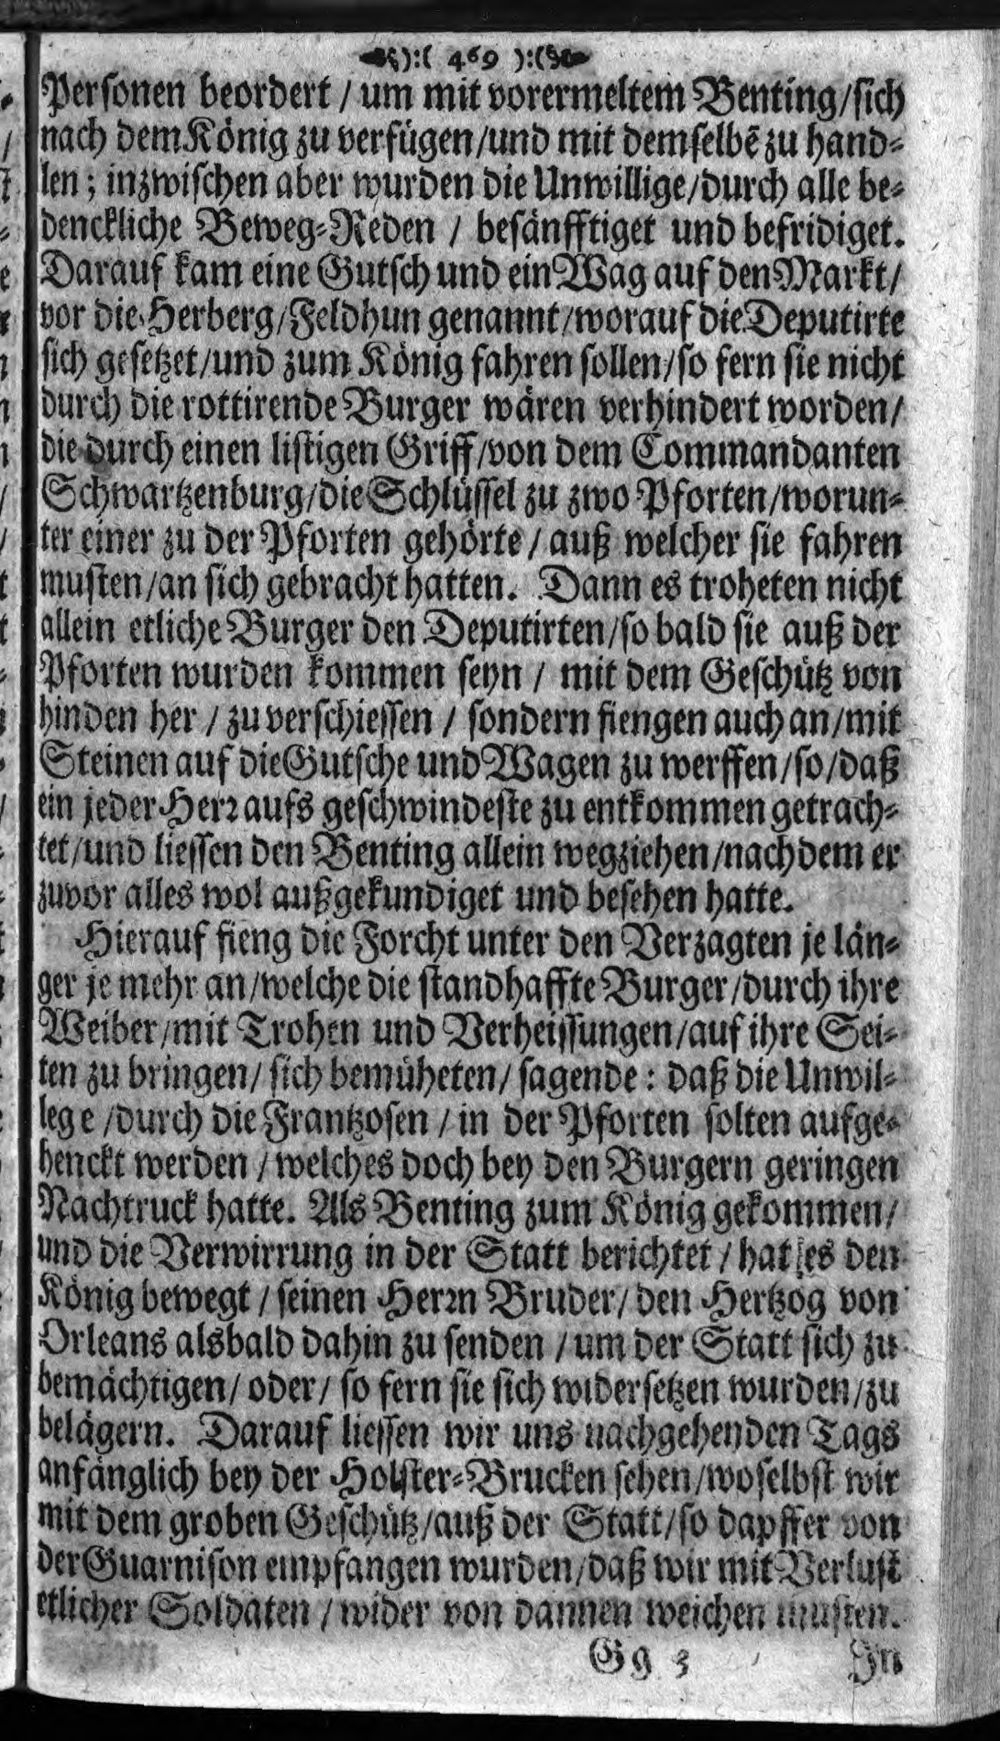 ):( 469 ):(
Personen beordert / um mit vorermeltem Benting/sich
nach dem König zu verfügen/und mit demselbẽ zu hand-
len; inzwischen aber wurden die Unwillige/durch alle be-
denckliche Beweg-Reden / besänfftiget und befridiget.
Darauf kam eine Gutsch und ein Wag auf den Markt/
vor die Herberg/Feldhun genannt/worauf die Deputirte
sich gesetzet/und zum König fahren sollen/so fern sie nicht
durch die rottirende Burger wären verhindert worden/
die durch einen listigen Griff/von dem Commandanten
Schwartzenburg/die Schlüssel zu zwo Pforten/worun-
ter einer zu der Pforten gehörte / auß welcher sie fahren
musten/an sich gebracht hatten. Dann es troheten nicht
allein etliche Burger den Deputirten/so bald sie auß der
Pforten wurden kommen seyn / mit dem Geschütz von
hinden her / zu verschiessen / sondern fiengen auch an/mit
Steinen auf die Gutsche und Wagen zu werffen/so/daß
ein jeder Herꝛ aufs geschwindeste zu entkommen getrach-
tet/und liessen den Benting allein wegziehen/nachdem er
zuvor alles wol außgekundiget und besehen hatte.
Hierauf fieng die Forcht unter den Verzagten je län-
ger je mehr an/welche die standhaffte Burger/durch ihre
Weiber/mit Trohen und Verheissungen/auf ihre Sei-
ten zu bringen/ sich bemüheten/ sagende: daß die Unwil-
lege /durch die Frantzosen / in der Pforten solten aufge-
henckt werden / welches doch bey den Burgern geringen
Nachtruck hatte. Als Benting zum König gekommen/
und die Verwirrung in der Statt berichtet / hat es den
König bewegt / seinen Herꝛn Bruder/ den Hertzog von
Orleans alsbald dahin zu senden / um der Statt sich zu
bemächtigen/ oder/ so fern sie sich widersetzen wurden/zu
belägern. Darauf liessen wir uns nachgehenden Tags
anfänglich bey der Holster-Brucken sehen/woselbst wir
mit dem groben Geschütz/auß der Statt/so dapffer von
der Guarnison empfangen wurden/daß wir mit Verlust
etlicher Soldaten / wider von dannen weichen musten.
Gg 3 In